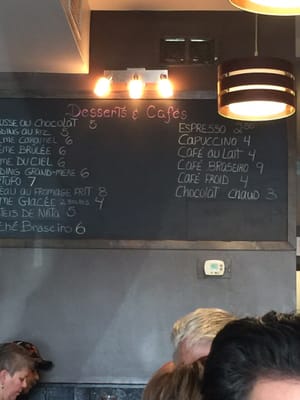 Desserts & Cafés
USSE AU CHOCOLAT 5
DING AU RIZ 5
ME CARAMEL 6
ME BRÛLÉE 6
ME DU CIEL 6
DING GRAND-MÈRE 6
TUFO 7
EAU AU FROMAGE FRIT 8
ME GLACÉE 2 BOULES 4
TEIS DE NATA 5
CHÉ BRASEIRO 6
ESPRESSO 2.50
CAPUCCINO 4
CAFÉ AU LAIT 4
CAFÉ BRASEIRO 9
CAFÉ FROID 4
CHOCOLAT CHAUD 3